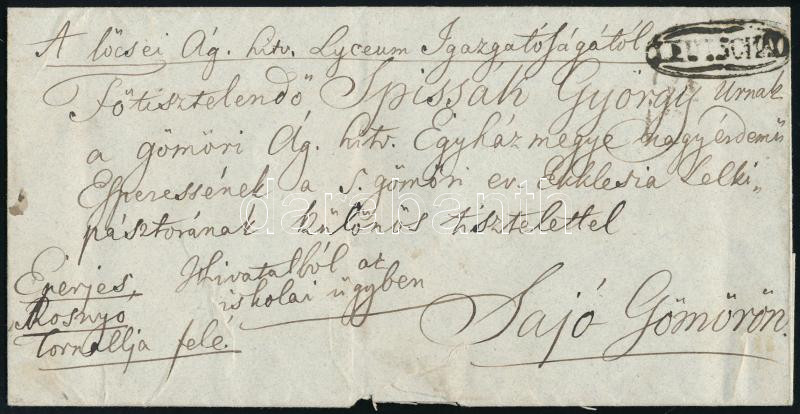 A lőcsei Ág. hitv. Lyceum Igazgatóságától
LEUTSCHAU
Főtisztelendő Spissák György Urnak
a gömöri Ág. hitv. Egyházmegye nagyérdemű
Esperessének a s. gömöri ev. Ekklesia Lelki„
pásztorának különös tisztelettel
Eperjes, Hivatalból az
Rosnyo iskolai ügyben
Tornallja felé.
Sajó Gömörön.
darabanth